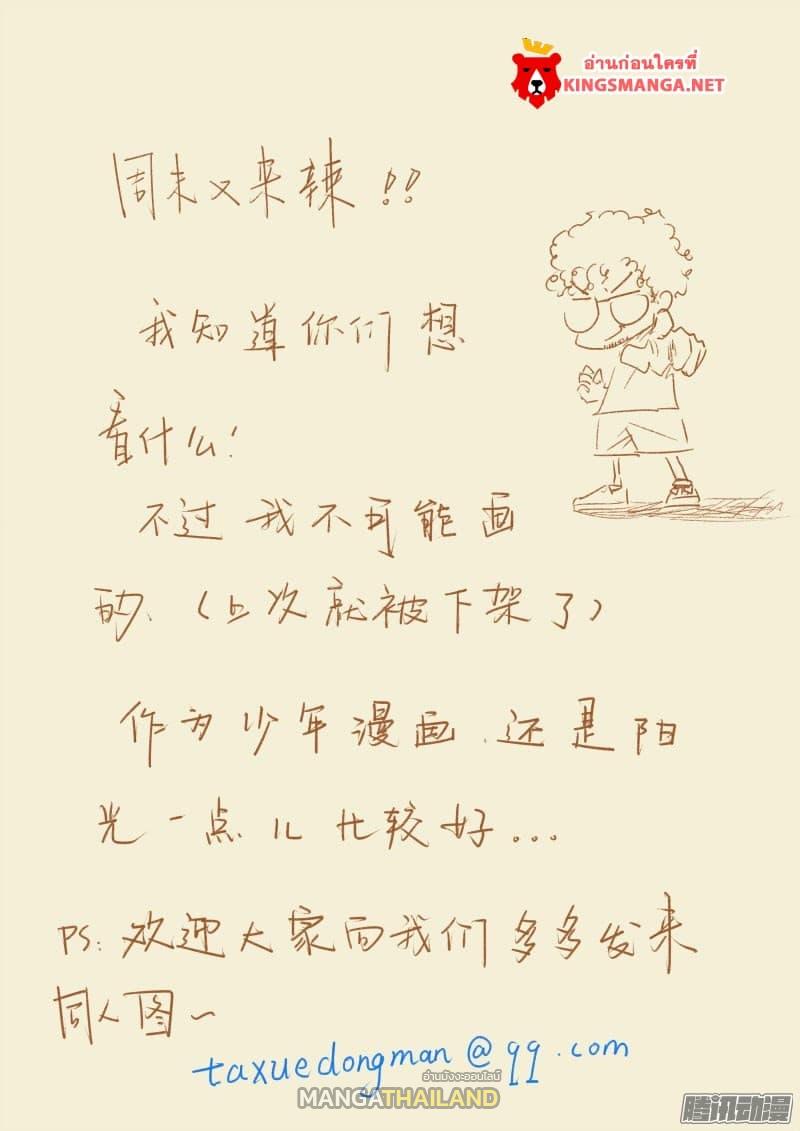 อ่านก่อนใครที่
KINGSMANGA.NET
周末又来辣!!
我知道你们想
看什么!
不过我不可能画
的、(上次就被下架了)
作为少年漫画、还是阳
光一点儿比较好...
PS:欢迎大家向我们多多发来
同人图~
taxuedongman@qq.com
อ่านมังงะออนไลน์
MANGATHAILAND
腾讯动漫